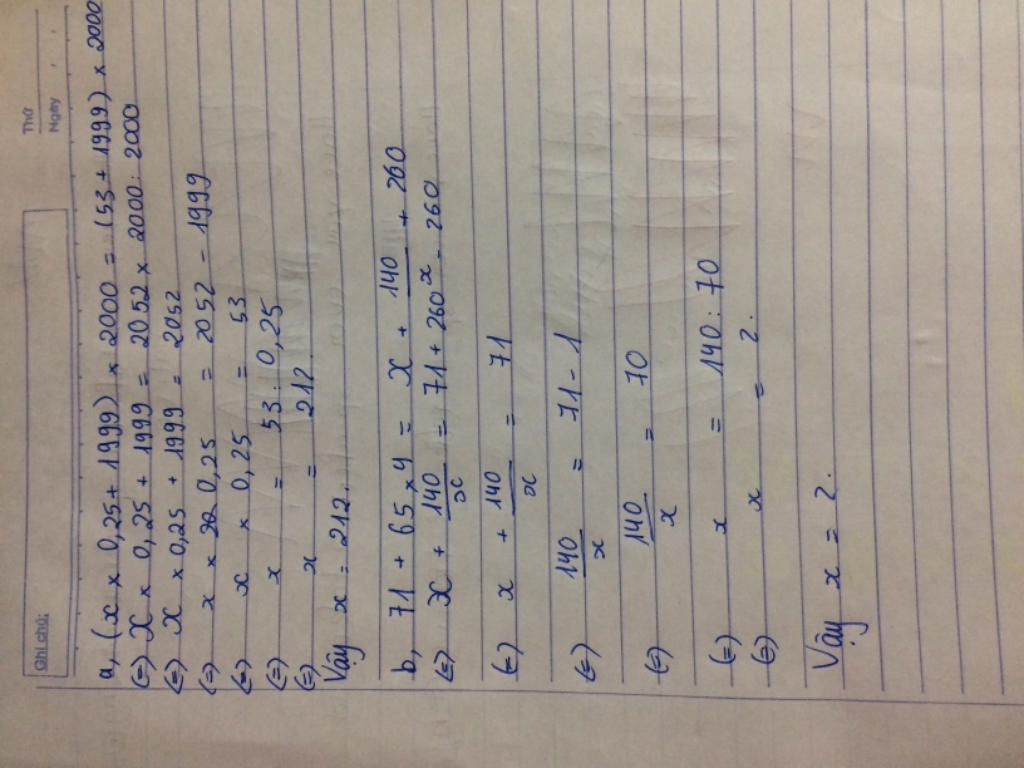 Thứ
Ngày
Ghi chú:
a, (x x 0,25 + 1999) x 2000 = (53 + 1999) x 2000
(=) x x 0,25 + 1999 = 2052 x 2000 : 2000
(=) x x 0,25 + 1999 = 2052
(=) x x 0,25 = 2052 - 1999
(=) x x 0,25 = 53
(=) x = 53 : 0,25
(=) x = 212.
Vậy x = 212.
b, 71 + 65 x 4 = x + 140 + 260
(=) x + 140/x = 71 + 260 - 260
(=) x + 140/x = 71
(=) 140/x = 71 - 1
(=) 140/x = 70
(=) x = 140 : 70
(=) x = 2.
Vậy x = 2.